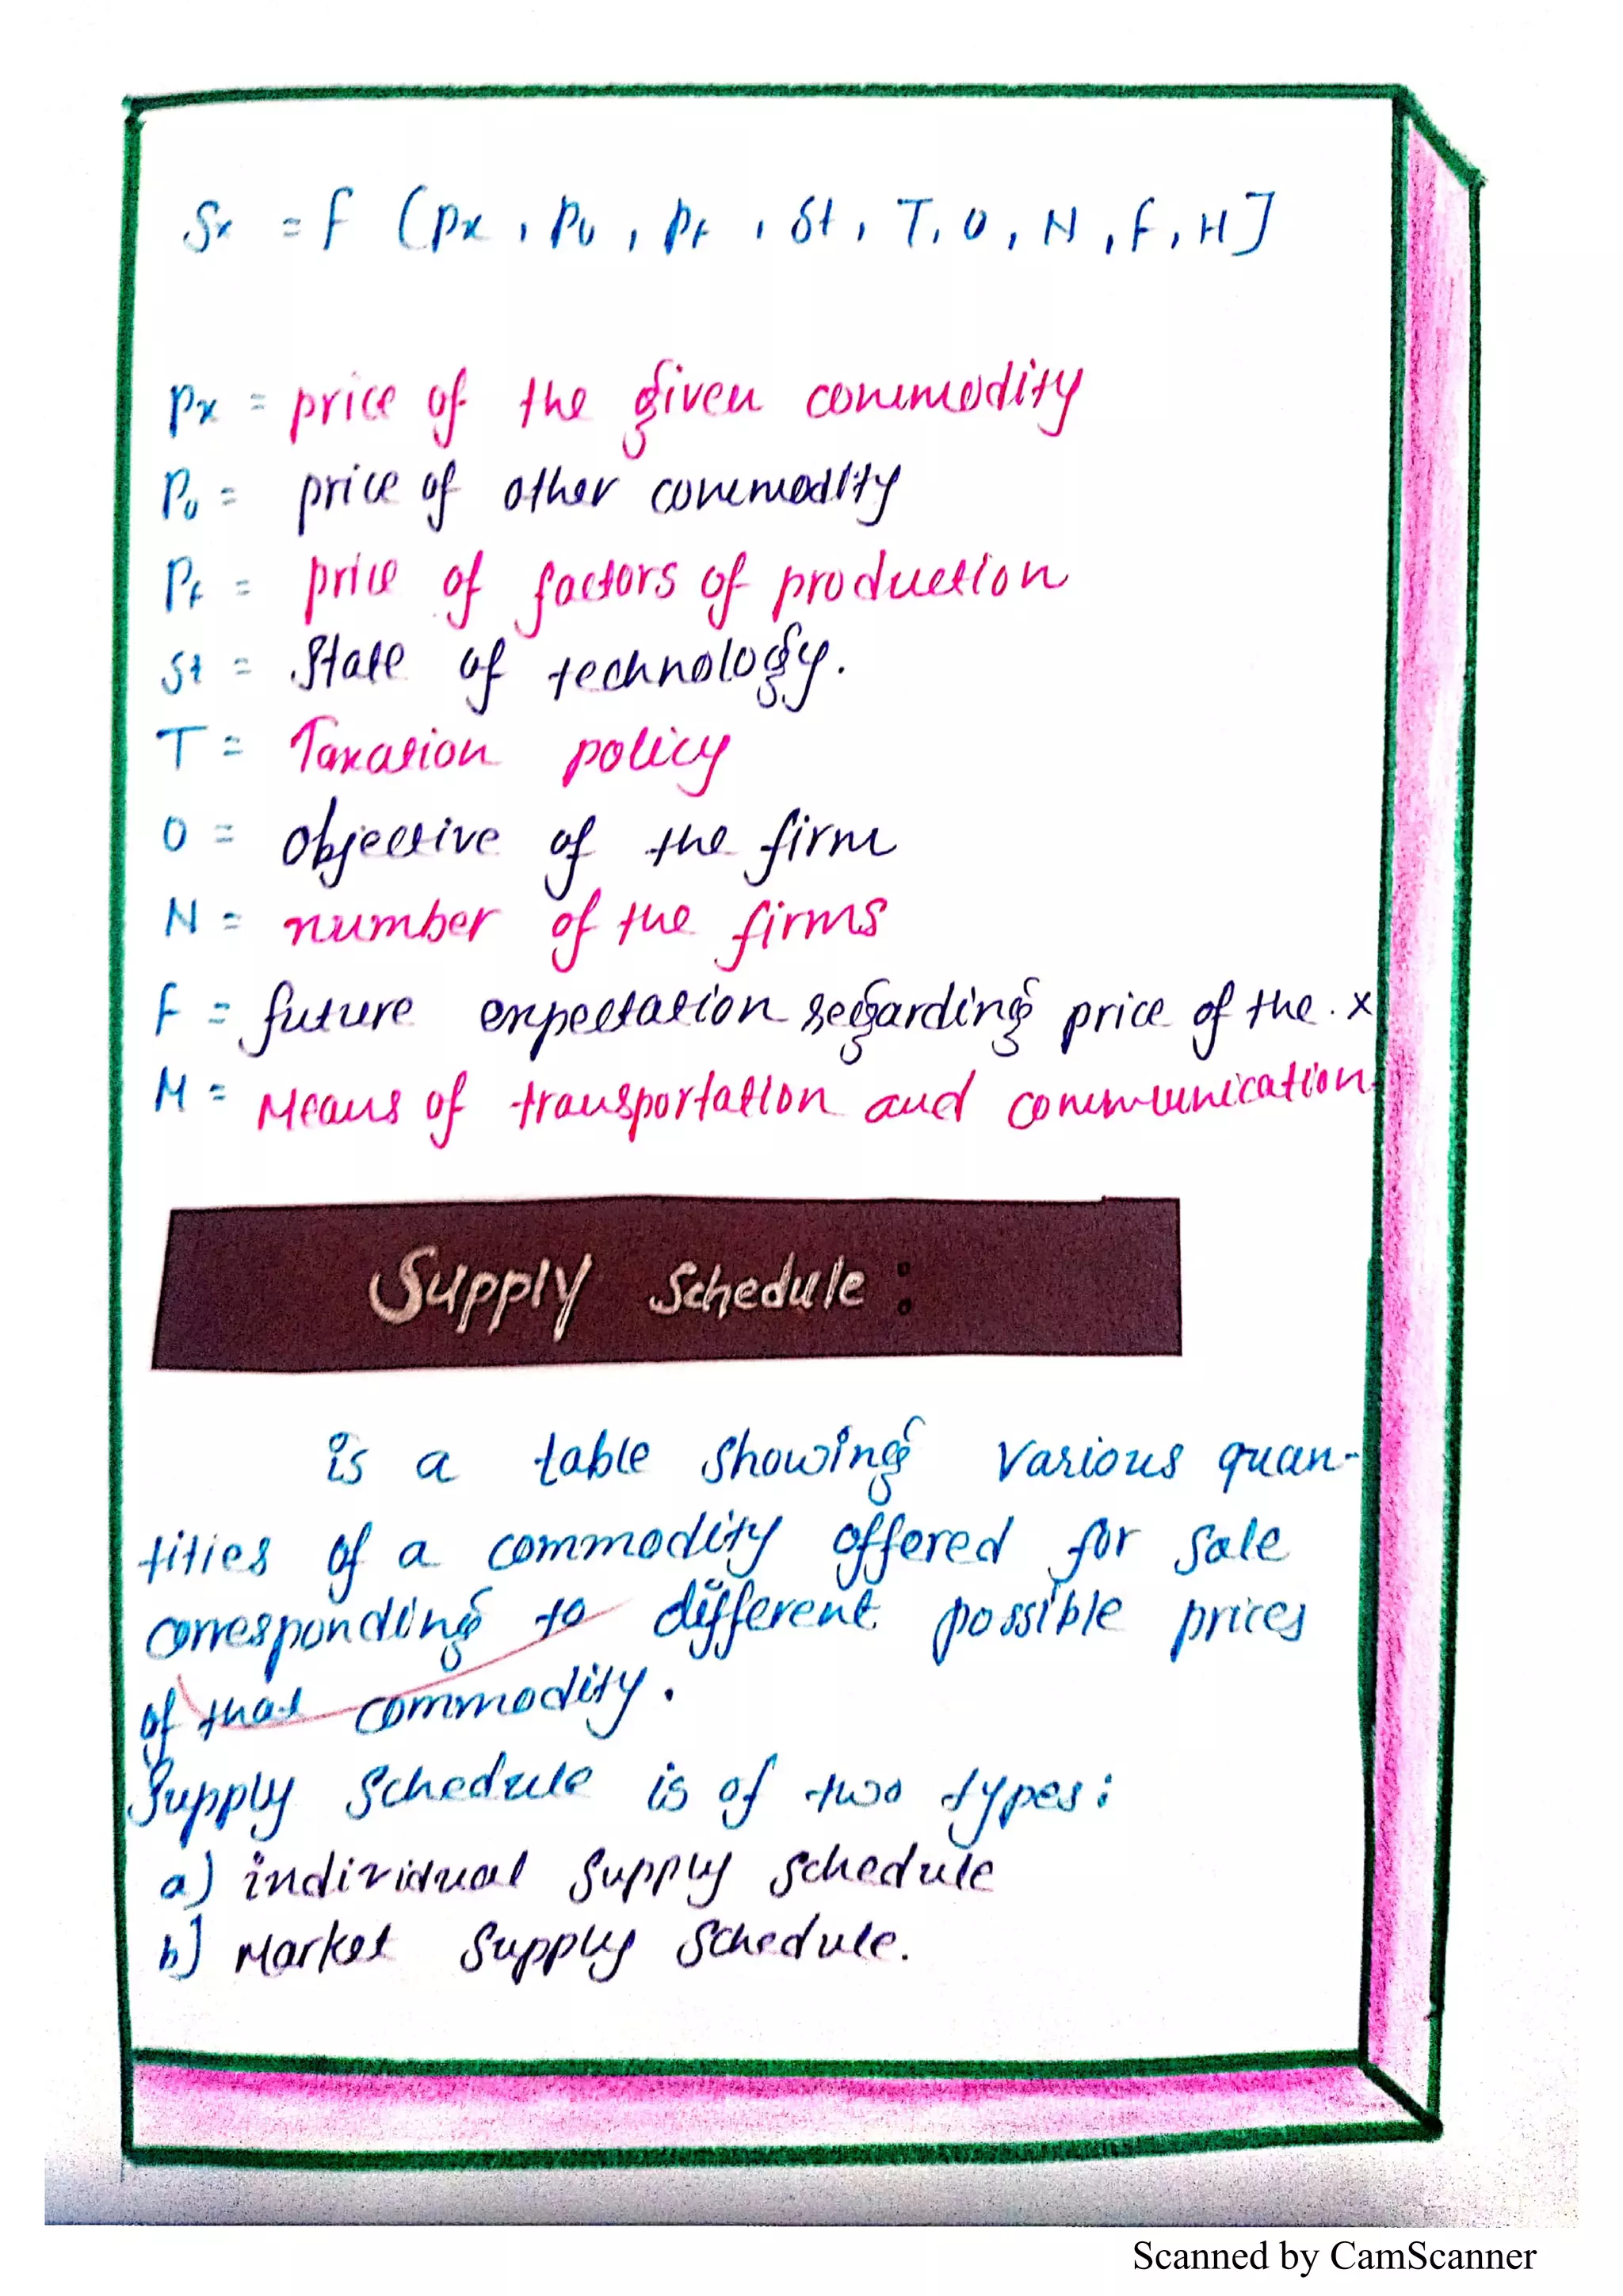 Sx = f (Px, Po, Pf, St, T, O, N, F, M]
Px = price of the given commodity
Po = price of other commodity
Pf = price of factors of production
St = State of technology.
T = Taxation policy
O = objective of the firm
N = number of the firms
F = future expectation regarding price of the . x
M = Means of transportation and communication.
Supply Schedule :
is a table showing various quan-
tities of a commodity offered for sale
corresponding to different possible prices
of that commodity.
Supply Schedule is of two types:
a) individual Supply Schedule
b] Market Supply Schedule.
Scanned by CamScanner